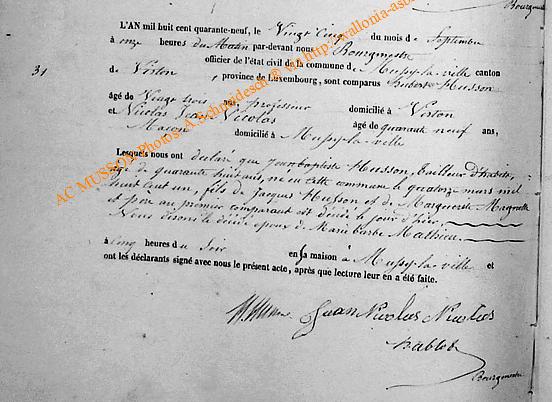 Bourgmestre
L'AN mil huit cent quarante-neuf, le Vingt Cinq du mois de Septembre
à onze heures du Matin par-devant nous Bourgmestre
officier de l'état civil de la commune de Mussy-la-ville canton
31 de Virton, province de Luxembourg, sont comparus Hubert Husson
âgé de Vingt trois ans, professeur domicilié à Virton
et Nicolas Jean Nicolas âgé de quarante neuf ans,
Maçon domicilié à Mussy-la-ville
Lesquels nous ont déclaré que jean baptiste Husson, tailleur d'habits,
âgé de quarante huit ans, né en cette commune le quatorze mars mil
huit cent un, fils de Jacques Husson et de Marguerite
et père au premier comparant est décédé le jour d'hier
Nous disons le décédé époux de Marie barbe Mathieu
à Cinq heures du Soir en sa maison à Mussy-la-ville et
ont les déclarants signé avec nous le présent acte, après que lecture leur en a été faite.
Jean Nicolas Nicolas
Bourgmestre
AC MUSSON Photos A. Schmidesch ® via http://wallonia-aso